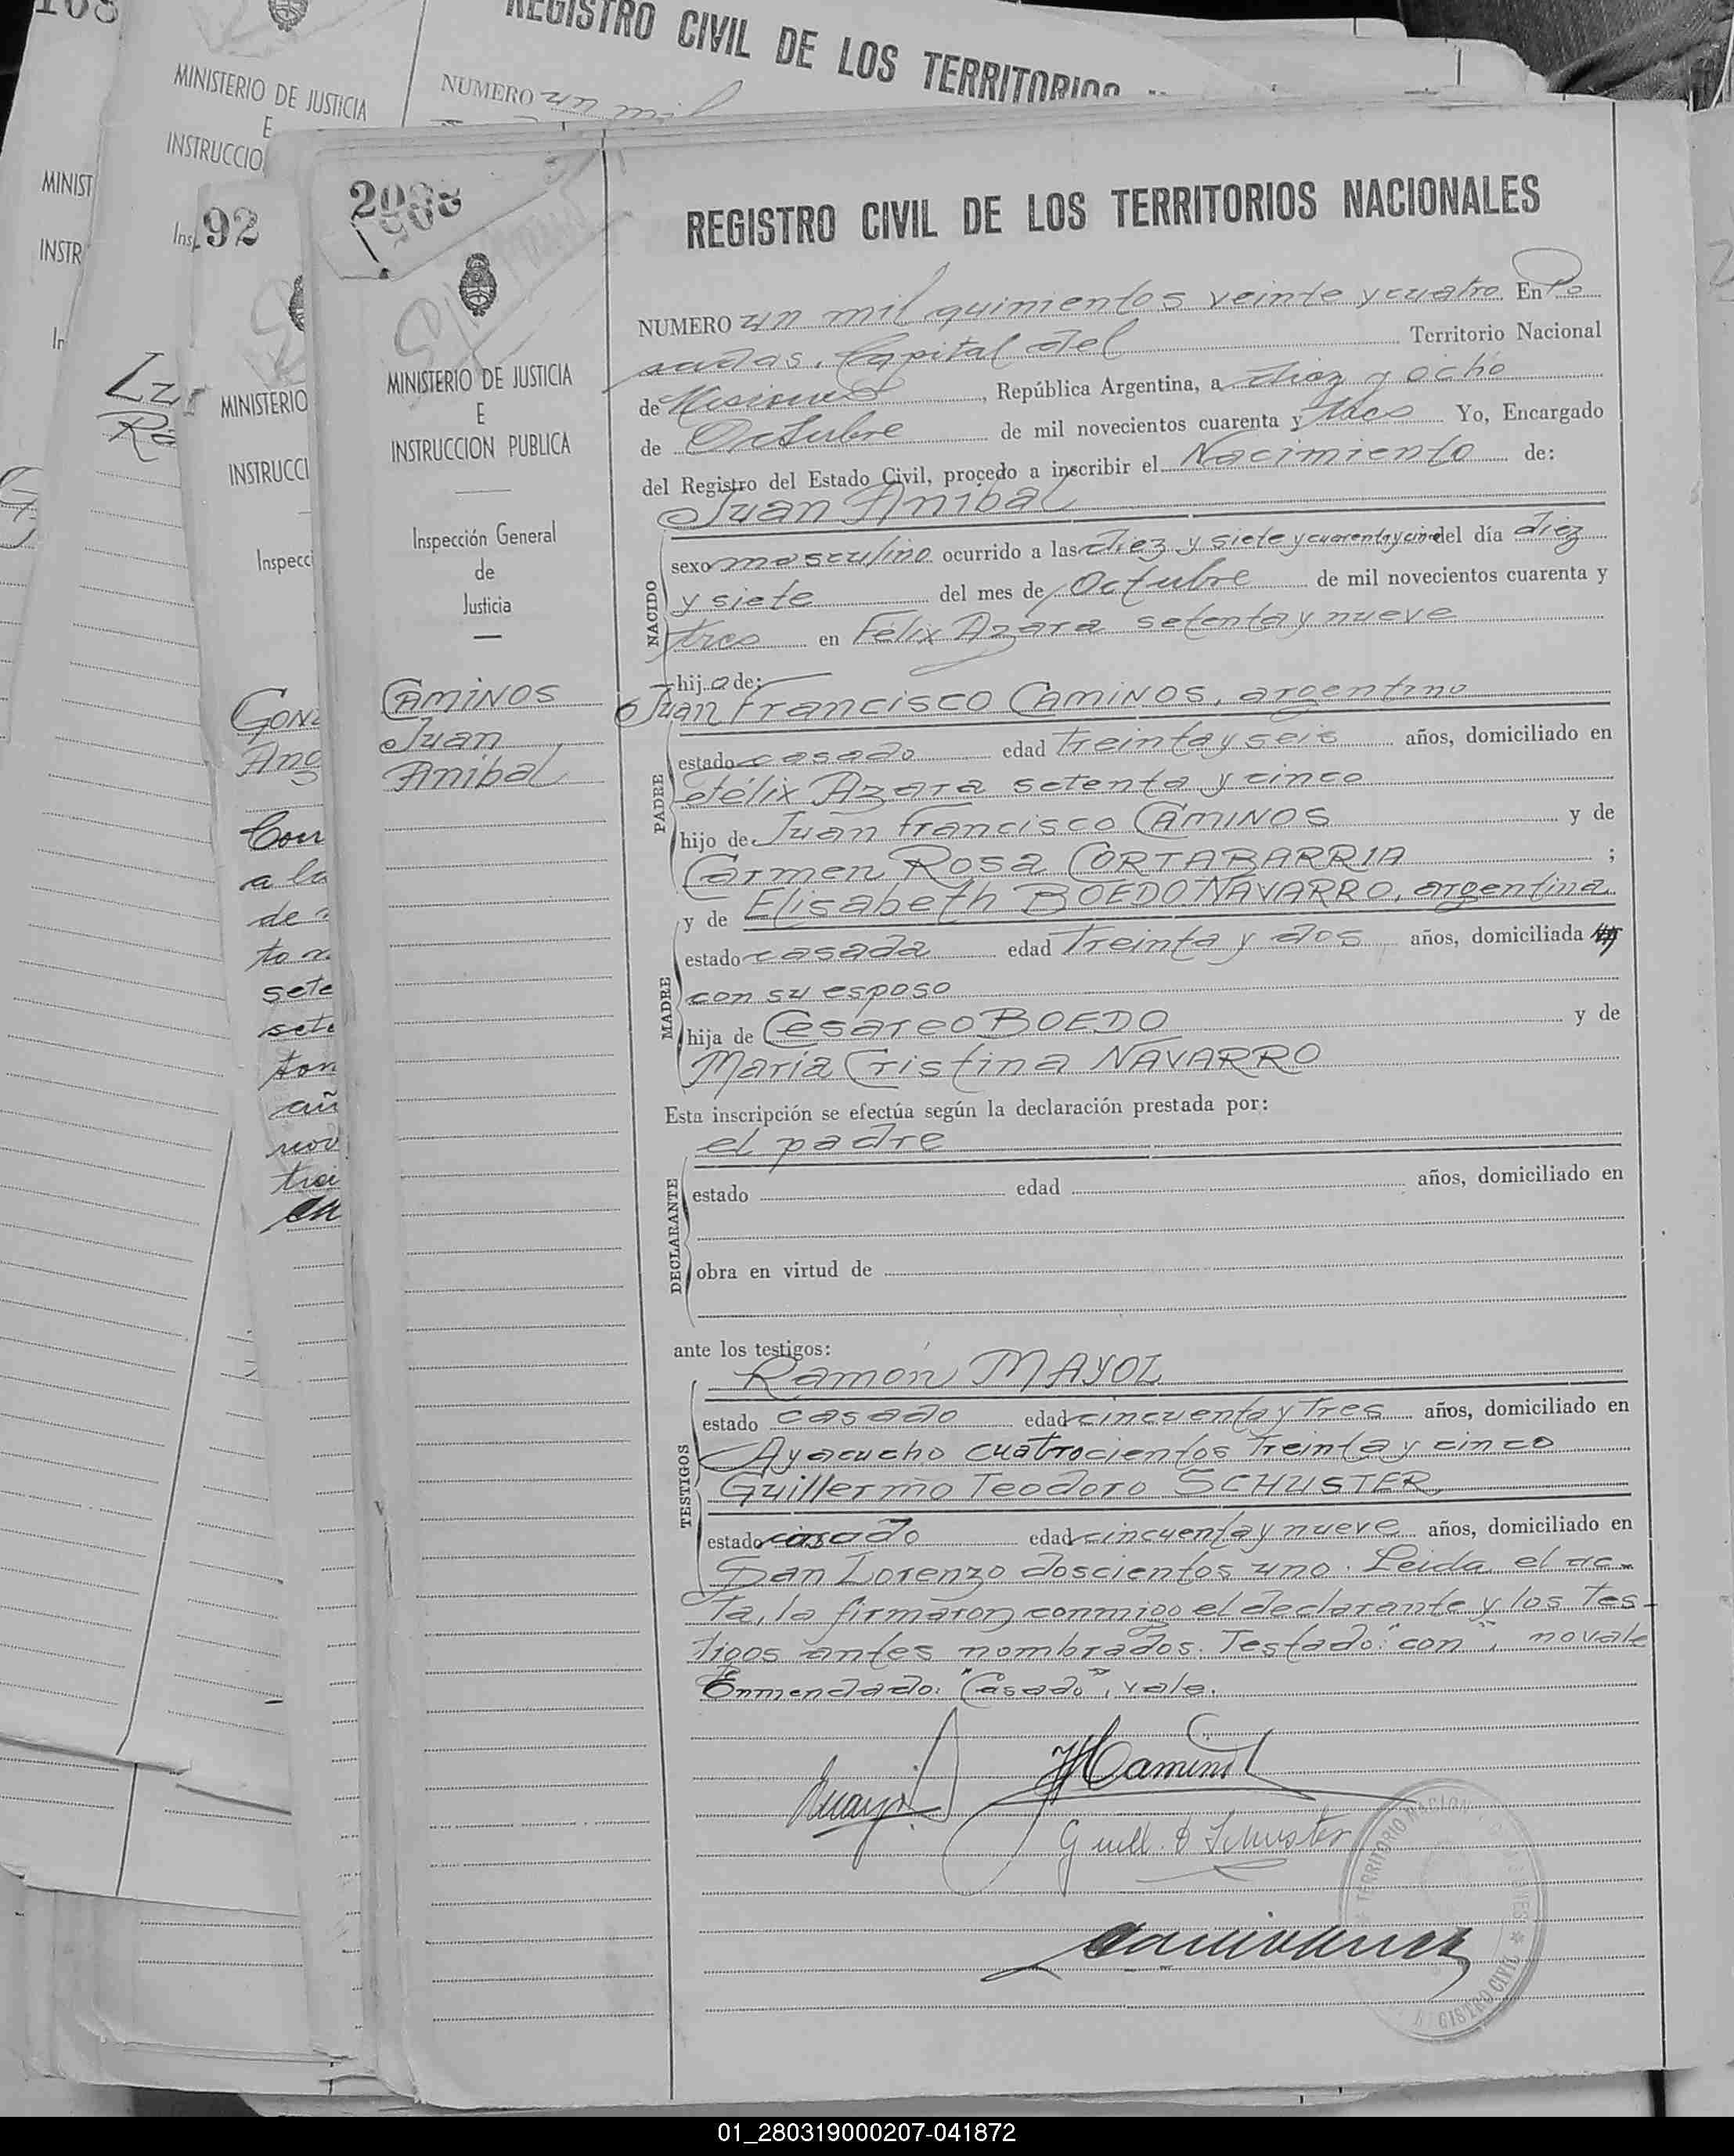 REGISTRO CIVIL DE LOS TERRITORIOS
MINISTERIO DE JUSTICIA
E
INSTRUCCIO
NUMERO un mil
MINIST
INSTR
Ins
92
Lu
MINISTERIO
INSTRUCCI
Inspecc
Gonz
Ang
a la
de
sete
MINISTERIO DE JUSTICIA
E
INSTRUCCION PUBLICA
Inspección General
de
Justicia
CAMINOS
Juan
Anibal
REGISTRO CIVIL DE LOS TERRITORIOS NACIONALES
NUMERO un mil quinientos veinte y cuatro En Po
sadas, Capital del Territorio Nacional
de Misiones, República Argentina, a diez y ocho
de Octubre de mil novecientos cuarenta y tres Yo, Encargado
del Registro del Estado Civil, procedo a inscribir el Nacimiento de:
Juan Anibal
NACIDO
sexo masculino ocurrido a las diez y siete y cuarenta y cinco del día diez
y siete del mes de Octubre de mil novecientos cuarenta y
tres en Félix Azara setenta y nueve
hijo de:
Juan Francisco CAMINOS, argentino
PADRE
estado casado edad treinta y seis años, domiciliado en
Félix Azara setenta y cinco
hijo de Juan Francisco CAMINOS y de
Carmen Rosa CORTABARRIA ;
y de Elisabeth BOEDO NAVARRO, argentina
MADRE
estado casada edad treinta y dos años, domiciliada
con su esposo
hija de Cesareo BOEDO y de
María Cristina NAVARRO
Esta inscripción se efectúa según la declaración prestada por:
el padre
DECLARANTE
estado edad años, domiciliado en
obra en virtud de
ante los testigos:
Ramón MAYOL
TESTIGOS
estado casado edad cincuenta y tres años, domiciliado en
Ayacucho cuatrocientos treinta y cinco
Guillermo Teodoro SCHUSTER
estado casado edad cincuenta y nueve años, domiciliado en
San Lorenzo doscientos uno. Leida el ac-
ta, la firmaron conmigo el declarante y los tes-
tigos antes nombrados. Testado: "con", no vale
Enmendado: "Casado", vale.
Guill. T Schuster
TERRITORIO NACION
REGISTRO CIVIL
01_280319000207-041872